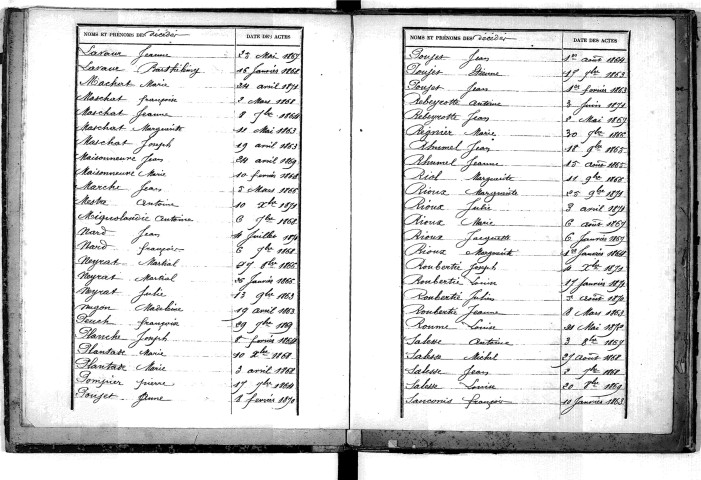 NOMS ET PRÉNOMS DES décédés DATE DES ACTES
Lavaur Jeanne 22 Mai 1867
Lavaur Barthélémy 16 Janvier 1868
Machat Marie 24 avril 1871
Maschat françoise 2 Mars 1868
Maschat Jeanne 8 7bre 1864
Maschat Marguerite 11 Mai 1863
Maschat Joseph 19 avril 1863
Maisonneuve Jean 24 avril 1869
Maisonneuve Marie 10 fevrier 1868
Marche Jean 5 Mars 1866
Mestre Antoine 10 Xbre 1871
Antoine 6 7bre 1868
Nard Jean Juillet 1871
Nard françoise 6 7bre 1868
Neyrat Martial 27 8bre 1866
Neyrat Martial 26 Janvier 1865
Neyrat Julie 13 9bre 1863
Madeleine 19 avril 1863
Peuch françoise 29 9bre 1869
Planche Joseph 8 fevrier 1864
Plantade Marie 10 Xbre 1868
Plantade Marie 3 avril 1868
Pompier pierre 17 9bre 1864
Poujet 1 fevrier 1870
NOMS ET PRÉNOMS DES décédés DATE DES ACTES
Poujet Jean 1er août 1864
Poujet Etienne 17 7bre 1863
Poujet Jean 1er fevrier 1863
Rebeyrotte Antoine 3 Juin 1871
Rebeyrotte Jean 2 Mai 1867
Regnier Marie 30 9bre 1866
Rhumel Jean 18 9bre 1865
Rhumel Jeanne 15 août 1865
Riol Marguerite 11 9bre 1868
Rioux Marguerite 25 9bre 1871
Rioux Julie 3 avril 1871
Rioux Marie 6 août 1867
Rioux Jacquette 6 Janvier 1867
Rioux Marguerite 1er Janvier 1868
Roubertie Joseph 4 Xbre 1870
Roubertie Louise 17 Janvier 1871
Roubertie Julien 5 août 1870
Roubertie Jeanne 8 Mars 1863
Roume Louise 21 Mai 1870
Salesse Antoine 3 8bre 1867
Salesse Michel 27 août 1868
Salesse Jean 2 7bre 1868
Salesse Louise 20 8bre 1869
françoise 11 Janvier 1863